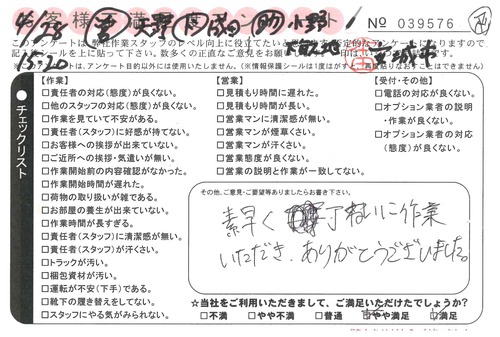 4/28
15:20
No 039576
このアンケートは弊社作業スタッフのレベル向上に役立てたいと
※このアンケートは、アンケート目的以外には使用いたしません。
チェックリスト
【作業】
□責任者の対応(態度)が良くない。
□他のスタッフの対応(態度)が良くない。
□作業を見ていて不安がある。
□責任者(スタッフ)に好感が持てない。
□お客様への挨拶が出来ていない。
□ご近所への挨拶・気遣いが無い。
□作業開始前の内容確認がなかった。
□作業開始時間が遅れた。
□荷物の取り扱いが雑である。
□お部屋の養生が出来ていない。
□作業時間が長すぎる。
□責任者(スタッフ)に清潔感が無い。
□責任者(スタッフ)が汗くさい。
□トラックが汚い。
□梱包資材が汚い。
□運転が不安(下手)である。
□靴下の履き替えをしてない。
□スタッフにやる気がみられない。
【営業】
□見積もり時間に遅れた。
□見積もり時間が長い。
□営業マンに清潔感が無い。
□営業マンが煙草くさい。
□営業マンが汗くさい。
□営業態度が良くない。
□営業の説明と作業が一致してない。
【受付・その他】
□電話の対応が良くない。
□オプション業者の説明
・作業が良くない。
□オプション業者の対応
(態度)が良くない。
その他、ご意見・ご要望等ありましたらお書き下さい。
素早く 丁ねいに作業
いただき、ありがとうございました。
☆当社をご利用いただきまして、ご満足いただけたでしょうか?
□不満 □やや不満 □普通 □やや満足 □満足